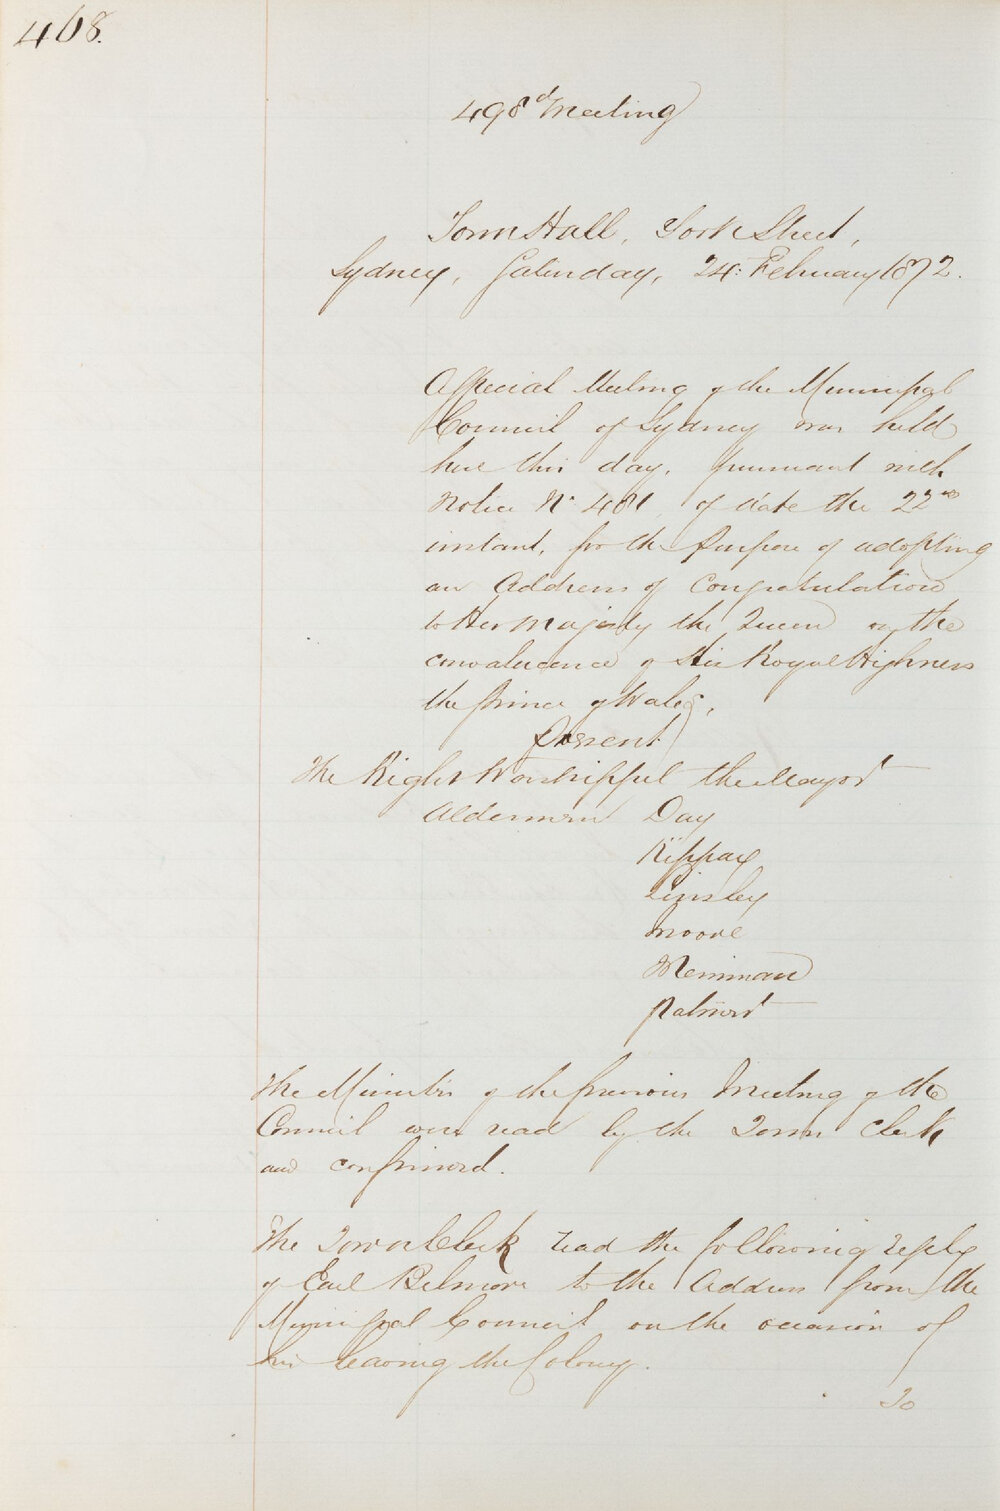 468.
498d Meeting
Town Hall, York Street,
Sydney, Saturday, 24: February 1872.
A Special Meeting of the Municipal
Council of Sydney was held
here this day, pursuant with
Notice No. 481, of date the 22nd
instant, for the purpose of adopting
an Address of Congratulation
to Her Majesty the Queen on the
convalescence of His Royal Highness
the Prince of Wales,
Present
The Right Worshipful the Mayor
Aldermen Day
Kippax
Linsley
Moore
Merriman
Palmer
The Minutes of the previous Meeting of the
Council were read by the Town Clerk
and confirmed.
The Town Clerk read the following reply
of Earl Belmore to the Address from the
Municipal Council on the occasion of
his leaving the Colony.
To